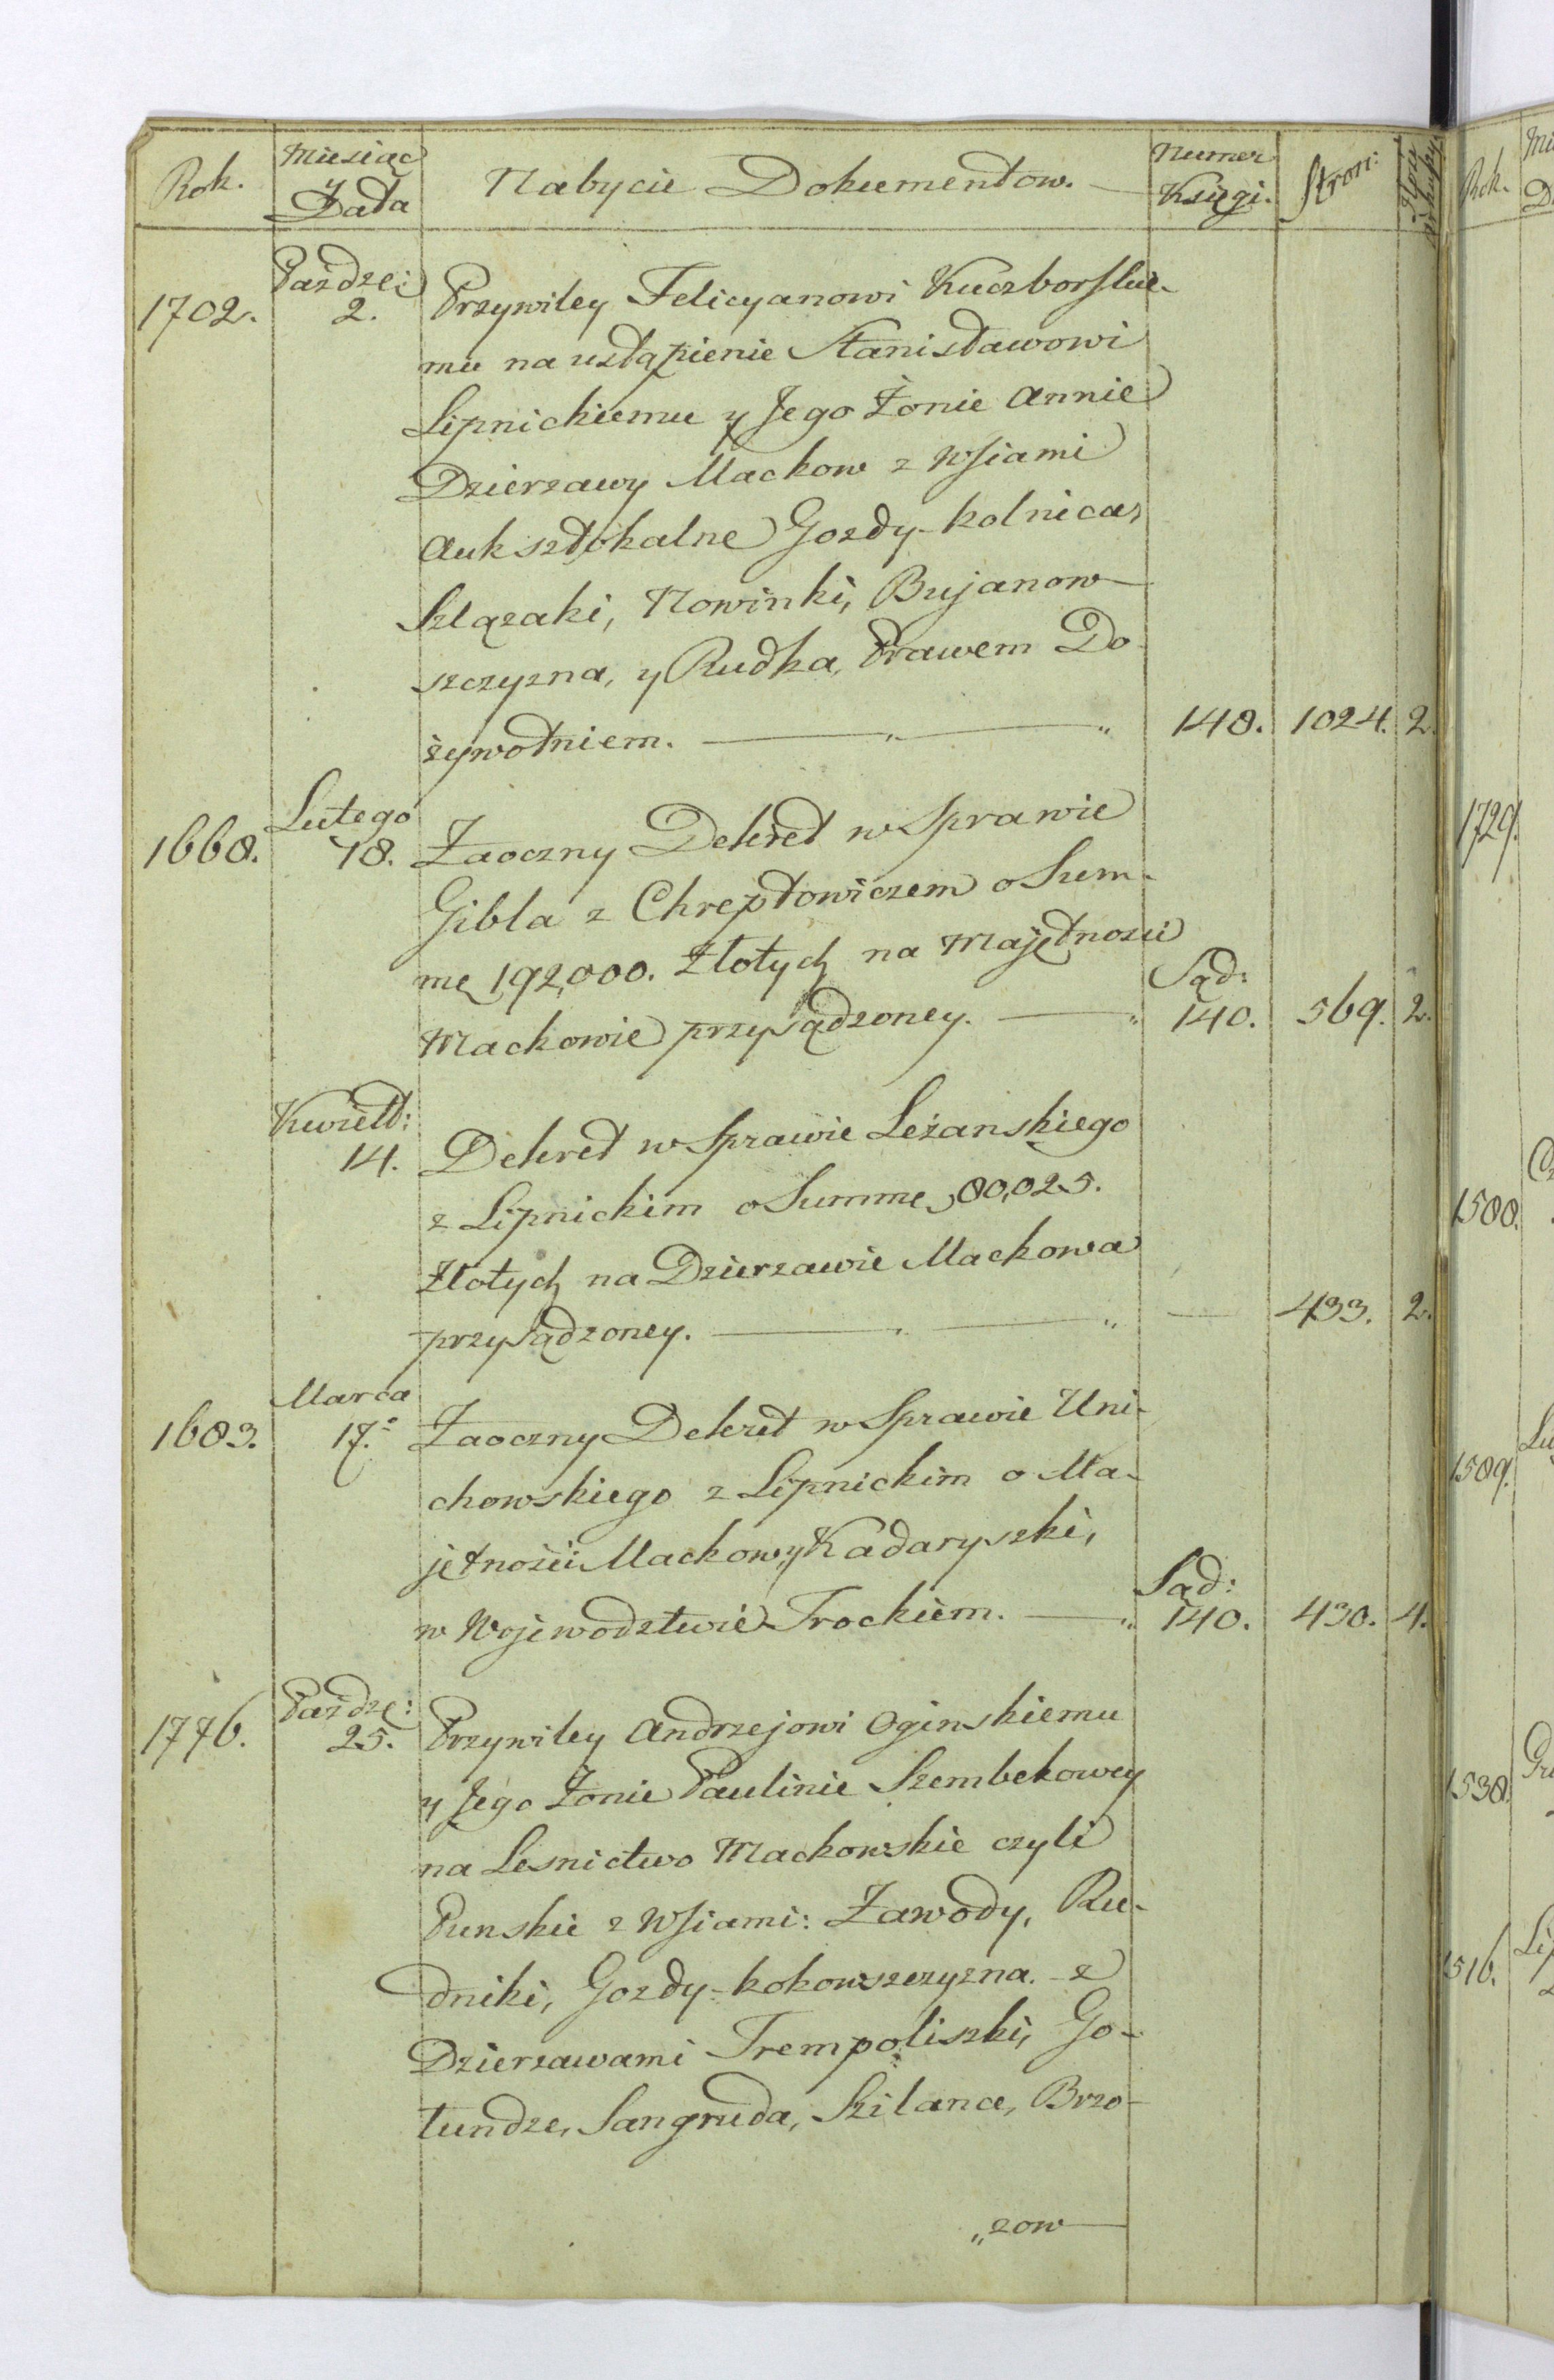 Rok. Miesiąc y Data Nabycie Dokumentow. Numer Księgi. Stron:
1702. Paździ: 2. Przywiley Felicyanowi Kuczborskie-
mu na ustąpienie Stanisławowi
Lipnickiemu y Jego Żonie Annie
Dzierzawy Mackow z Wsiami
Auksztokalne Gozdy-kolnica,
Szlązaki, Nowinki, Bujanow-
szczyzna, y Rudka, Prawem Do-
żywotniem. 148. 1024. 2.
1668. Lutego 18. Zaoczny Dekret w Sprawie
Gibla z Chreptowiczem o Sum-
mę 192,000. Złotych na Majętności
Mackowie przysądzoney. Sąd: 140. 569. 2.
Kwiet: 14. Dekret w Sprawie Leżanskiego
z Lipnickim o Summę 80,025.
Złotych na Dzierzawie Mackowa
przysądzoney. — 433. 2.
1683. Marca 17. Zaoczny Dekret w Sprawie Uni-
chowskiego z Lipnickim o Ma-
jętności Mackow, y Kadaryszki,
w Wojewodztwie Trockiem. Sąd: 140. 430. 4.
1776. Paździ: 25. Przywiley Andrzejowi Oginskiemu
y Jego Żonie Paulinie Szembekowey
na Lesnictwo Mackowskie czyli
Punskie z Wsiami: Zawody, Ru-
dniki, Gozdy-kokowszczyzna. z
Dzierzawami Trempoliszki, Go-
tundze, Sangruda, Szilance, Brzo-
„zow
Rok.
1729.
1500.
1509.
1538.
1516.